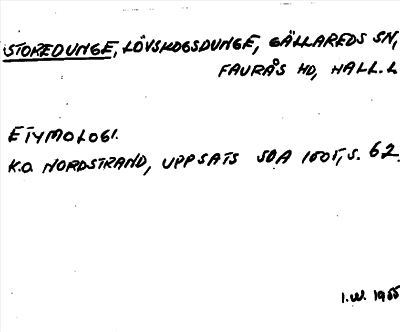 STOREDUNGE, LÖVSKOGSDUNGE, GÄLLAREDS SN,
FAURÅS HD, HALL.L
ETYMOLOGI.
K.O. NORDSTRAND, UPPSATS SOA 1505, S. 62.
I.W. 1955